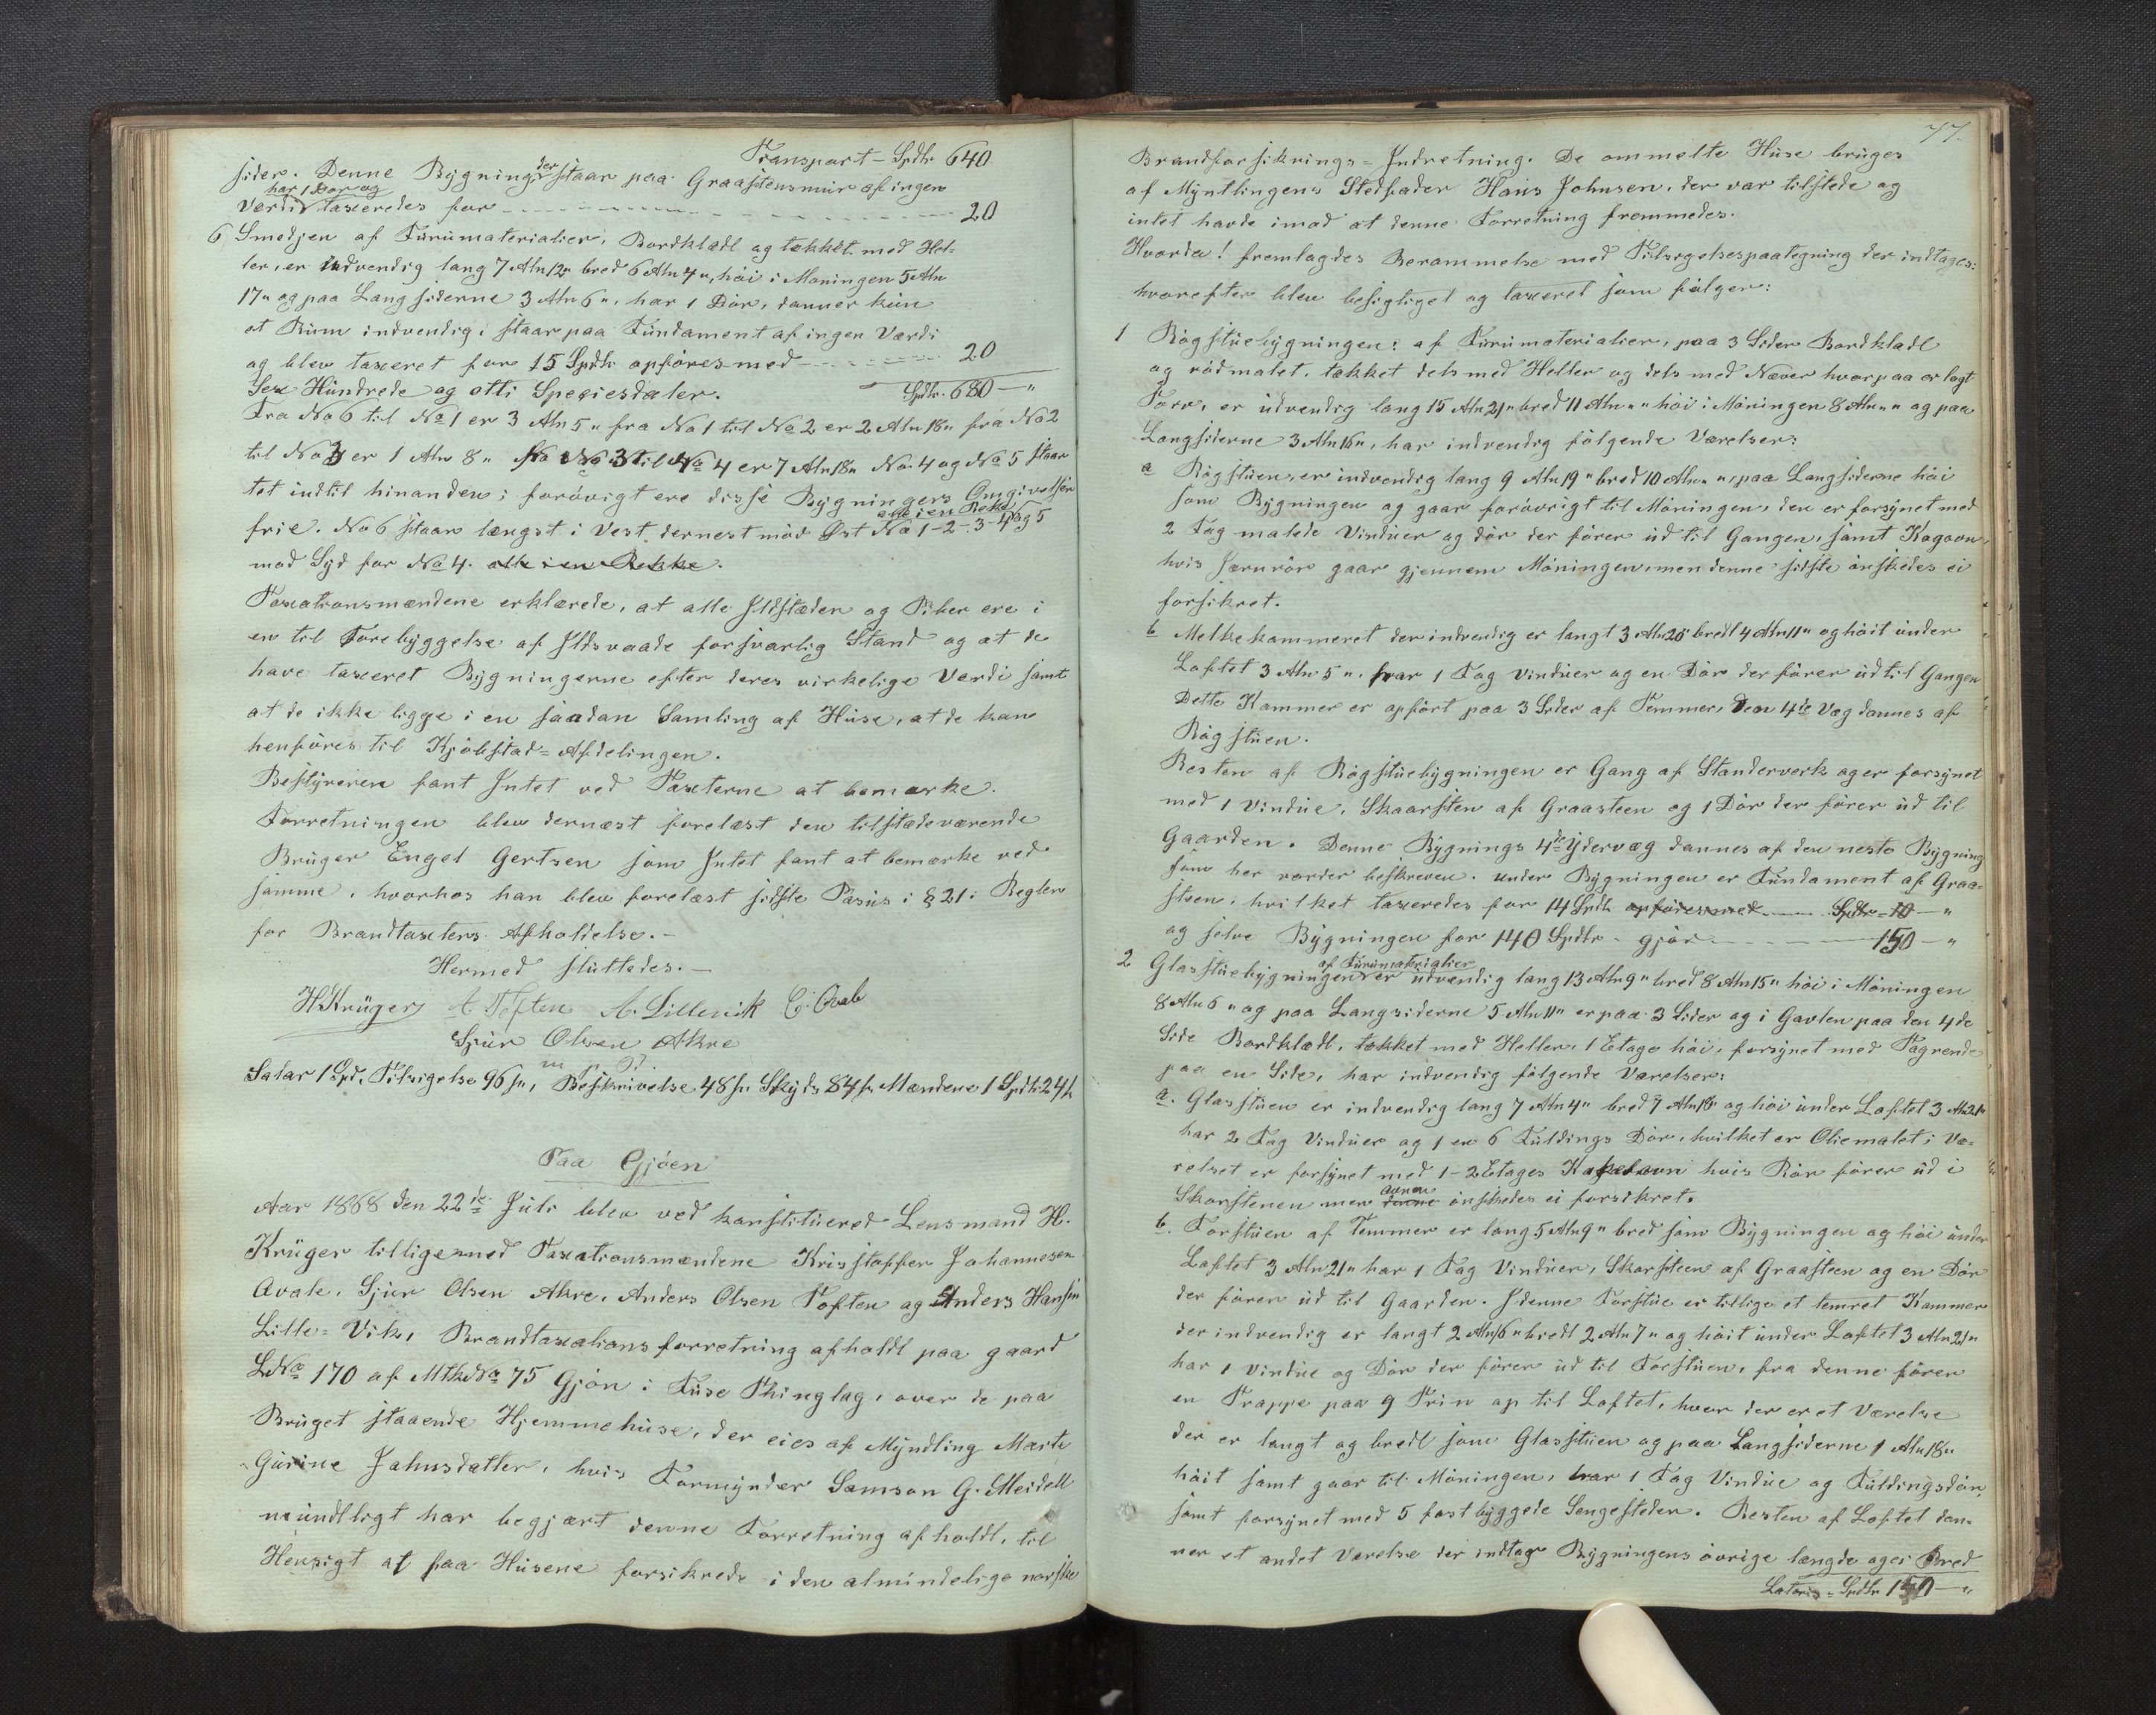 Transport - Spdlr 640
sider. Denne Bygning der staar paa Graastensmuur af ingen
Værdi har 1 Dør og taxeredes for 20
6 Smedjen af Furumaterialier, Bordklædt og tækket med Hel-
ler, er udvendig lang 7 Aln 12" bred 6 Aln 4", høi i Møningen 5 Aln
17" og paa Langsiderne 3 Aln 6", har 1 Dør, danner kun
et Rum indvendig, staar paa Fundament af ingen Værdi
og blev taxeret for 15 Spdlr opføres med 20
Sex Hundrede og otti Speciesdaler. Spdlr. 680 - "
Fra No 6 til No 1 er 3 Aln 5" fra No 1 til No 2 er 2 Aln 18" fra No 2
til No 3 er 1 Aln 8" fra No 3 til No 4 er 7 Aln 18" No 4 og No 5 staar
tet indtil hinanden; forøvrigt ere disse Bygningers Omgivelser
frie. No 6 staar længst i Vest dernest mod Øst No 1-2-3-4 alle i en Rekke og 5
mod Syd for No 4. alle i en Rekke.
Taxationsmændene erklærede, at alle Ildstæder og Piber ere i
en til Forebyggelse af Ildsvaade forsvarlig Stand og at de
have taxeret Bygningerne efter deres virkelige Værdi samt
at de ikke ligge i en saadan Samling af Huse, at de kan
henføres til Kjøbstad-Afdelingen.
Bestyreren fant Intet ved Taxterne at bemærke.
Forretningen blev dernæst forelæst den tilstædeværende
Bruger Engel Gertsen som Intet fant at bemærke ved
samme, hvorhos han blev forelæst sidste Pasus i § 21 i Reglen
for Brandtaxters Afholdelse. -
Hermed sluttedes. -
H. Krüger A. Toften A. Lillevik C. Ovale
Sjur Olsen Akre
m p P.
Salar 1 Spd, Tilsigelse 96 s, Beskrivelse 48 s Skyds 84 s Mændene 1 Spdlr 24 s
Paa Gjøen
Aar 1868 den 22de Juli blev ved konstitueret Lensmand H.
Krüger tilligemed Taxationsmændene Kristoffer Johannesen
Ovale, Sjur Olsen Akre, Anders Olsen Toften og Anders Hansen
Lille-Vik, Brandtaxationsforretning afholdt paa gaard
LNo 170 af MtkNo 75 Gjøn i Fuse Thinglag, over de paa
Bruget staaende Hjemmehuse, der eies af Myndling Marte
Gurine Johnsdatter, hvis Formynder Samson G. Meidell
mundtligt har begjært denne Forretning afholdt, til
Hensigt at faa Husene forsikrede i den almindelige norske
77.
Brandforsikrings-Indretning. De ommelte Huse bruges
af Myntlingens Stedfader Hans Johnsen, der var tilstede og
intet havde imod at denne Forretning fremmedes.
Hvorda! fremlagdes Berammelse med Tilsigelsespaategning der indtages:
hvorefter blev besigtiget og taxeret som følger:
1 Røgstuebygningen: af Furumaterialier, paa 3 Sider Bordklædt
og rødmalet, tækket dels med Heller og dels med Næver hvorpaa er lagt
Torv, er udvendig lang 15 Aln 21" bred 11 Aln " " høi i Møningen 8 Aln " " og paa
Langsiderne 3 Aln 16", har indvendig følgende Værelser:
a Røgstuen, er indvendig lang 9 Aln 19" bred 10 Aln " ", paa Langsiderne høi
som Bygningen og gaar forøvrigt til Møningen, den er forsynet med
2 Fag malede Vinduer og dør der fører ud til Gangen, samt Kogeovn,
hvis Jernrør gaar gjennem Møningen, men denne sidste ønskedes ei
forsikret.
b Melkekammeret der indvendig er langt 3 Aln 20" bredt 4 Aln 11" og høit under
Loftet 3 Aln 5", har 1 Fag Vinduer og en Dør der fører ud til Gangen
Dette Kammer er opført paa 3 Sider af Temmer, den 4de Væg dannes af
Røgstuen.
Resten af Røgstuebygningen er Gang af Standerverk og er forsynet
med 1 Vindue, Skaarsten af Graasteen og 1 Dør der fører ud til
Gaarden. Denne Bygnings 4de Ydervæg dannes af den neste Bygning
som her vorder beskreven. under Bygningen er Fundament af Graa-
steen, hvilket taxeredes for 14 Spdlr opføres med Spdlr 10 - "
og selve Bygningen for 140 Spdlr - gjør 150 - "
2 Glasstuebygningen af Furumaterialier er udvendig lang 13 Aln 9" bred 8 Aln 15" høi i Møningen
8 Aln 6" og paa Langsiderne 5 Aln 11" er paa 3 Sider og i Gavlen paa den 4de
Side Bordklædt, tækket med Heller, 1 Etage høi, forsynet med Tagrende
paa en Side, har indvendig følgende Værelser:
a. Glasstuen er indvendig lang 7 Aln 4" bred 7 Aln 18" og høi under Loftet 3 Aln 21"
har 2 Fag Vinduer og 1 en 6 Fuldings Dør, hvilket er Oliemalet; Væ-
relset er forsynet med 1 - 2 Etages Kakelovn hvis Rør fører ud i
Skorstenen men denne ovnen ønskedes ei forsikret.
b. Forstuen af Temmer er lang 5 Aln 9" bred som Bygningen og høi under
Loftet 3 Aln 21" har 1 Fag Vinduer, Skorsteen af Graasteen og en Dør
der fører ud til Gaarden. I denne Forstue er tillige et temret Kammer
der indvendig er langt 2 Aln 16" bredt 2 Aln 7" og høit under Loftet 3 Aln 21"
har 1 Vindue og Dør der fører ud til Forstuen, fra denne fører
en Trappe paa 9 Trin op til Loftet, hvor der er et Værelse
der er langt og bredt som Glasstuen og paa Langsiderne 1 Aln 18"
høit samt gaar til Møningen, har 1 Fag Vindue og Fuldingsdør
samt forsynet med 5 fast byggede Sengesteder. Resten af Loftet dan-
ner et andet Værelse der indtager Bygningens øvrige længde og i Bred
Lateris - Spdlr 150 - "